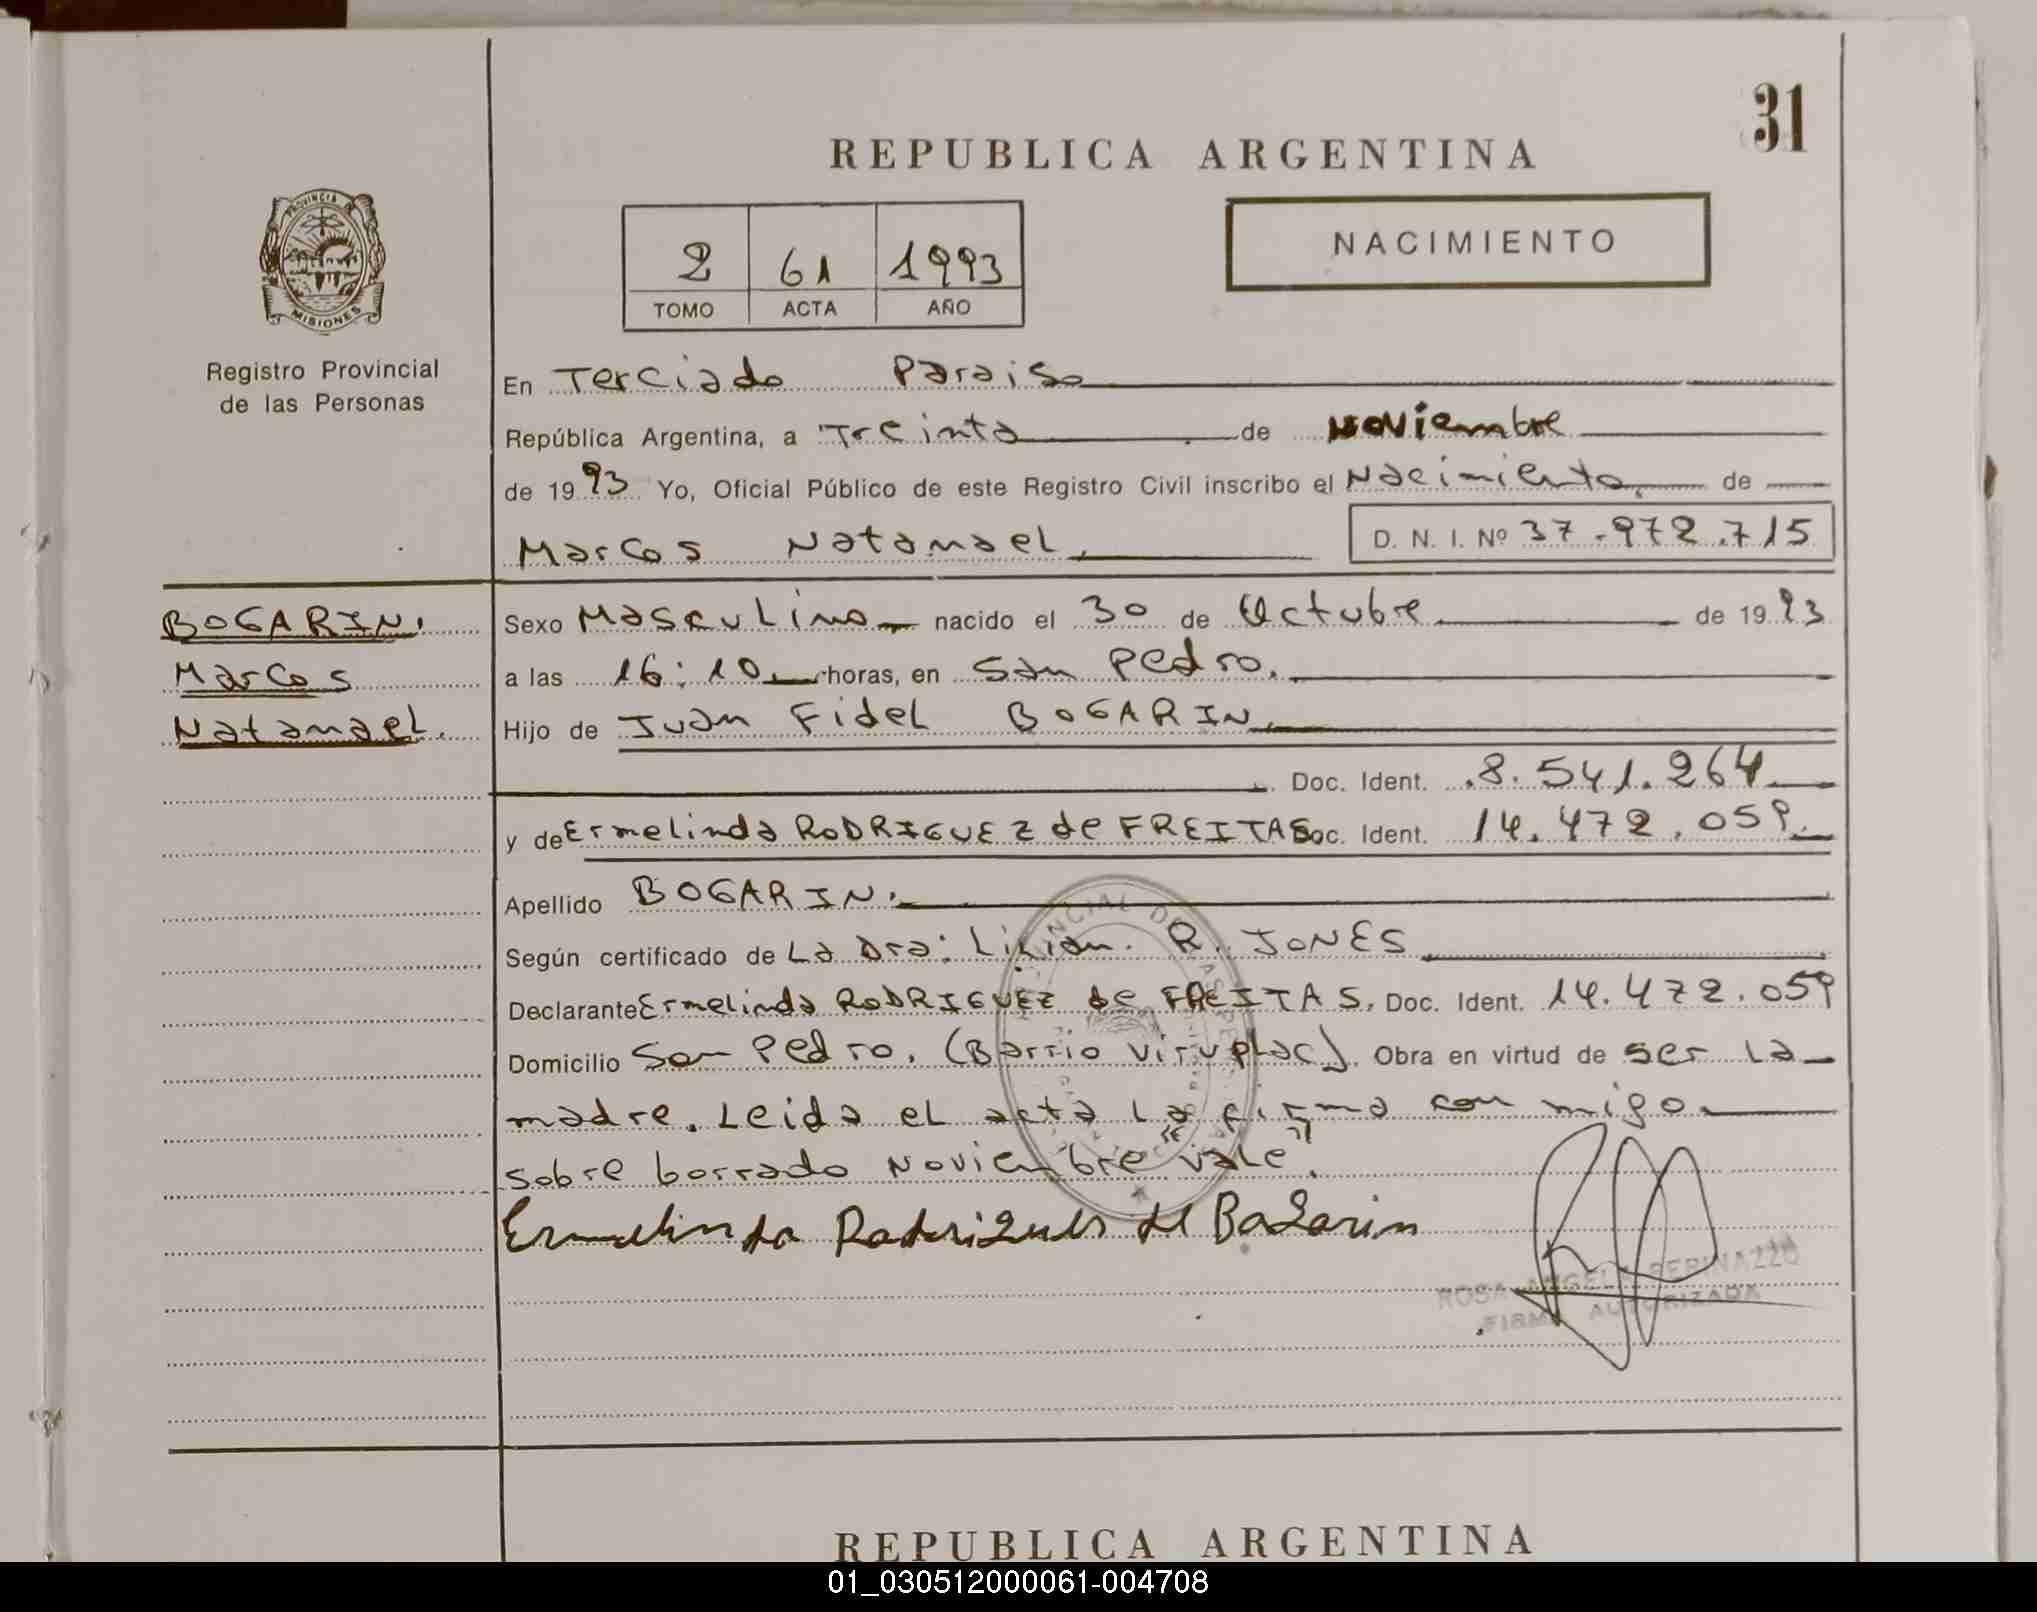 31
REPUBLICA ARGENTINA
PROVINCIA DE
MISIONES
Registro Provincial
de las Personas
2 61 1993
TOMO ACTA AÑO
NACIMIENTO
En Terciado Paraiso
República Argentina, a Treinta de Noviembre
de 1993 Yo, Oficial Público de este Registro Civil inscribo el Nacimiento, de
Marcos Natanael, D. N. I. Nº 37.972.715
BOGARIN.
Marcos
Natanael.
Sexo Masculino nacido el 30 de Octubre de 1993
a las 16:10 horas, en San Pedro.
Hijo de Juan Fidel BOGARIN.
Doc. Ident. 8.541.264
y de Ermelinda RODRIGUEZ de FREITAS Doc. Ident. 14.472.059.
Apellido BOGARIN.
Según certificado de La Dra: Lilian. R. JONES
Declarante Ermelinda RODRIGUEZ de FREITAS. Doc. Ident. 14.472.059
Domicilio San Pedro. (Barrio Viruplac). Obra en virtud de ser la
madre. Leida el acta la firma con migo.
sobre borrado Noviembre "vale".
Ermelinda Rodriguez de Bogarin
ROSA ANGELA
FIRMA AUTORIZADA
REPUBLICA ARGENTINA
01_030512000061-004708